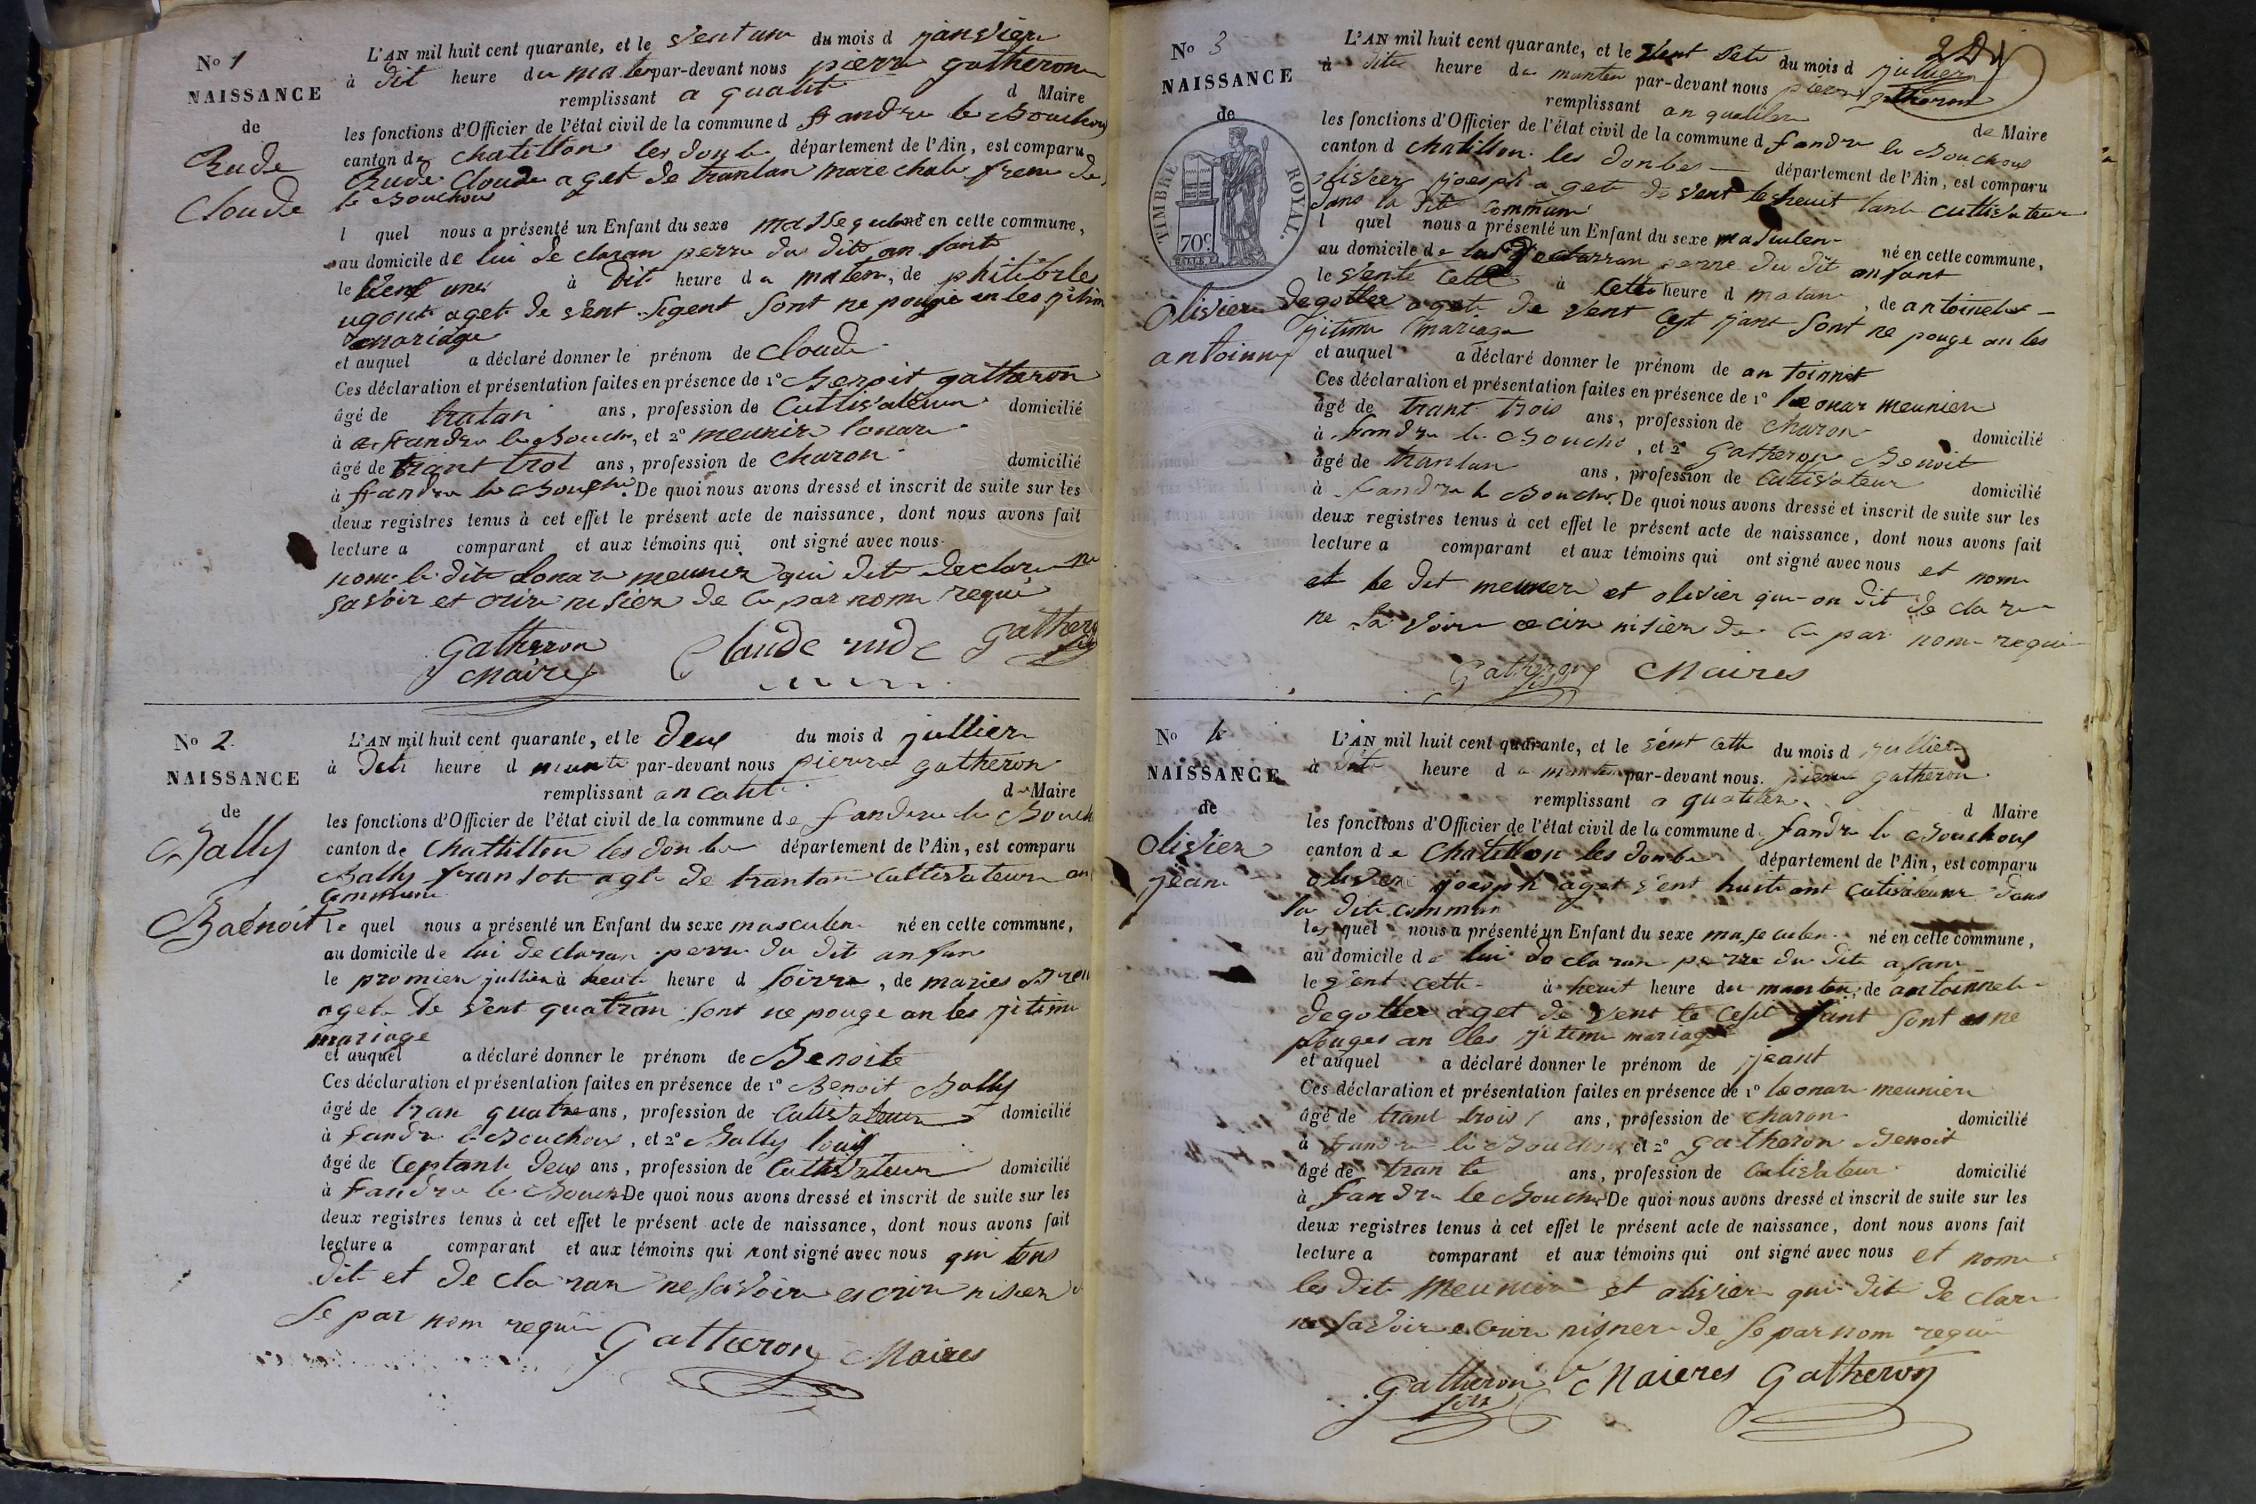 No 1
NAISSANCE
de
Rude
Cloude
L'AN mil huit cent quarante, et le vent une du mois d janvier
à dit heure du maten par-devant nous pierre gatheron
remplissant a qualit d Maire
les fonctions d'Officier de l'état civil de la commune d st andre le Bouchou
canton de chatillon les donbe département de l'Ain, est comparu
Rude Cloude aget de trantan marechale
le Bouchou
l quel nous a présenté un Enfant du sexe né en cette commune,
au domicile de lui de claran perre du dit anfant
le vent une à Dit heure du maten, de
aget de vent sont ne pouge an les jitim
mariage
et auquel a déclaré donner le prénom de Cloude
Ces déclaration et présentation faites en présence de 1º Benoit gatheron
âgé de trantan ans, profession de Cultivateur domicilié
à st andre le Bouch, et 2º meunier lonar
âgé de trant troi ans, profession de charon domicilié
à st andre le Bouche. De quoi nous avons dressé et inscrit de suite sur les
deux registres tenus à cet effet le présent acte de naissance, dont nous avons fait
lecture a comparant et aux témoins qui ont signé avec nous
nom le dit lonar meunier qui dit declare ne
savoir et crire nisien de ce par nom requi
Gatheron
Maire
Claude rude
Gatheron
No 2
NAISSANCE
de
Bally
Baenoit
L'AN mil huit cent quarante, et le deux du mois d jullier
à Dite heure d par-devant nous pierre gatheron
remplissant an calit d Maire
les fonctions d'Officier de l'état civil de la commune de st andre le Bouch
canton de Chattillon les donbe département de l'Ain, est comparu
Bally fransoit agt de trantan Cultivateur an
Commune
le quel nous a présenté un Enfant du sexe masculen né en cette commune,
au domicile de lui declaran perre du dit anfan
le promier jullier à heut heure d soirre, de maries
aget de vent quatran sont ne pouge an les jitime
mariage
et auquel a déclaré donner le prénom de Benoite
Ces déclaration et présentation faites en présence de 1º Benoit Bally
âgé de tran quatre ans, profession de Cultivateur domicilié
à st andre le Bouchou, et 2º Bally louis
âgé de Ceptante deux ans, profession de Cultivateur domicilié
à st andre le Bouch De quoi nous avons dressé et inscrit de suite sur les
deux registres tenus à cet effet le présent acte de naissance, dont nous avons fait
lecture a comparant et aux témoins qui ont signé avec nous qui tous
dit et de cla ran ne savoir escrire nisien
se par nom requi
Gatheron Maires
No 3
NAISSANCE
de
TIMBRE ROYAL.
70c
Olivier
antoinne
L'AN mil huit cent quarante, et le vent sete du mois d jullier
à dite heure du manten par-devant nous pierre gatheron
remplissant an qualite de Maire
les fonctions d'Officier de l'état civil de la commune d st andre le Bouchou
canton d chatillon les donbes département de l'Ain, est comparu
olivier joesph aget de vent le heuit tante cultivateur
dans la dite commune
l quel nous a présenté un Enfant du sexe masculen né en cette commune,
au domicile de lui declarran perre du dit anfant
le vente cette à cette heure d matan, de antoinete
degotte aget de vent cept jant sont ne pouge an les
jitime mariage
et auquel a déclaré donner le prénom de antoinnet
Ces déclaration et présentation faites en présence de 1º leonar meunier
âgé de trant trois ans, profession de charon domicilié
à st andre le Bouche, et 2º gatheron Benoit
âgé de trantan ans, profession de Cultivateur domicilié
à st andre le Bouche. De quoi nous avons dressé et inscrit de suite sur les
deux registres tenus à cet effet le présent acte de naissance, dont nous avons fait
lecture a comparant et aux témoins qui ont signé avec nous et nom
et le dit meunier et olivier qui on dit de clare
ne sa voir ecire nisien de ce par nom requi
Gatheron Maires
No 4
NAISSANCE
de
Olivier
jean
L'AN mil huit cent quarante, et le vent cette du mois d jullier
à dite heure du manten par-devant nous pierre gatheron
remplissant a qualiter d Maire
les fonctions d'Officier de l'état civil de la commune d st andre le Bouchous
canton de Chatillon les donbe département de l'Ain, est comparu
olivier joesph aget vent huite ant cultivateur dans
la dite commun
le quel nous a présenté un Enfant du sexe masculen né en cette commune,
au domicile de lui declaran perre du dite afan
le vent cette à heuit heure du manten, de antoinnete
degotte aget de vent te cept jant sont ne
pouges an les jitime mariage
et auquel a déclaré donner le prénom de jeant
Ces déclaration et présentation faites en présence de 1º leonar meunier
âgé de trant trois ans, profession de charon domicilié
à st andre le Bouchou et 2º gatheron Benoit
âgé de tran te ans, profession de Cultivateur domicilié
à st andre le Bouche De quoi nous avons dressé et inscrit de suite sur les
deux registres tenus à cet effet le présent acte de naissance, dont nous avons fait
lecture a comparant et aux témoins qui ont signé avec nous et nom
les dit meunier et olivier qui dit de clare
ne savoir e crire nisner de se par nom requi
Gatheron fils Maieres Gatheron